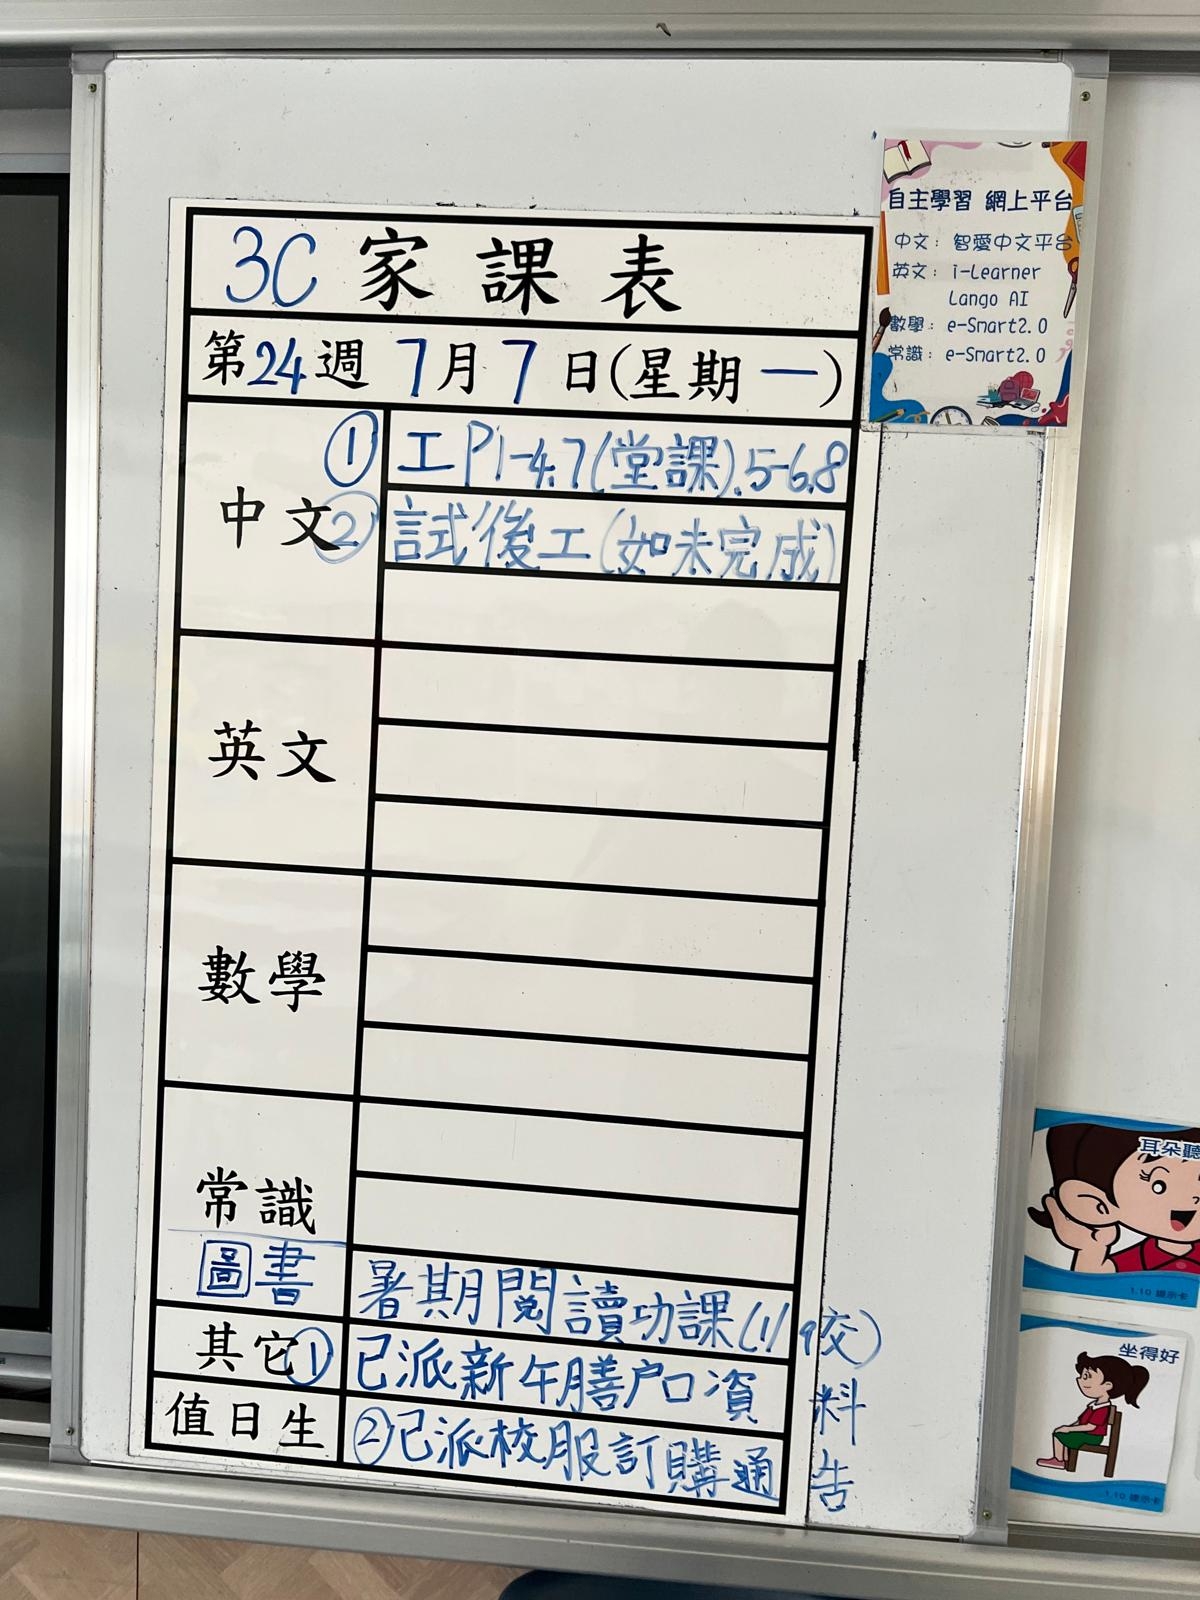 3C 家課表
第24週 7月7日(星期一)
中文
① 工P1-4.7(堂課).5-6.8
② 試後工(如未完成)
英文
數學
常識
圖書
暑期閱讀功課(1/9交)
其它
① 已派新午膳户口資料
值日生
② 已派校服訂購通告
自主學習 網上平台
中文: 智愛中文平台
英文: i-Learner
Lango AI
數學: e-Smart2.0
常識: e-Smart2.0
耳朵聽
1.10 提示卡
坐得好
1.10 提示卡